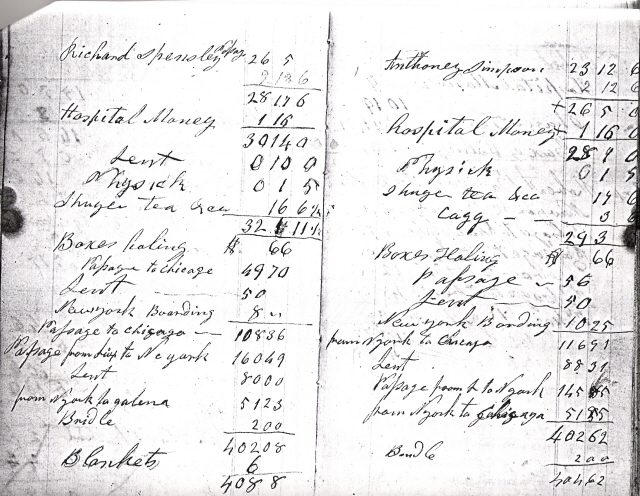 Richard Spensley Passag 26 5
2 12 6
28 17 6
Hospital Money 1 16
30 14 0
Lent 0 10 0
Physick 0 1 5
Shuger tea &ca 16 6½
32 11½
Boxes haling $ 66
Passage to Chicago 4970
Lent 50
New york Boarding 8
Passage to Chicago 10836
Passage from Liv to N yark 16049
Lent 8000
from N york to galena 5123
Bridle 200
40208
Blankets 6
4088
Anthoney Simpson 23 12 6
2 12 6
+ 26 5 0
Hospital Money + 1 16
28 1 0
Physick 0 1 5
Shuger tea &ca 17 6
Cagg 3 6
29 3
Boxes Haling $ 66
Passage 56
Lent 50
New york Boarding 1025
from N york to Chicago 11691
Lent 8831
Passage from L to N york 14585
from N york to 5155
40262
Bridle 200
40462